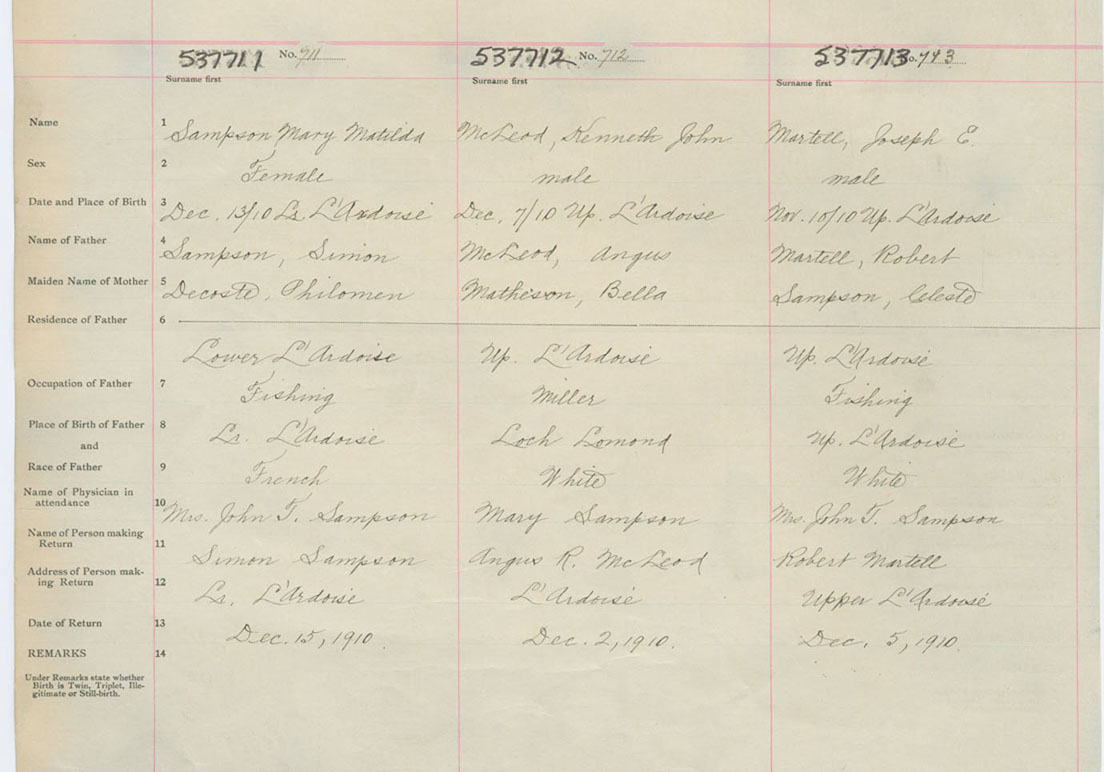 537711 No. 711 537712 No. 712 537713 No. 713
Surname first Surname first Surname first
Name 1 Sampson Mary Matilda McLeod, Kenneth John Martell, Joseph E.
Sex 2 Female male male
Date and Place of Birth 3 Dec. 13/10 Lr. L'Ardoise Dec. 7/10 Up. L'Ardoise Nov. 10/10 Up. L'Ardoise
Name of Father 4 Sampson, Simon McLeod, Angus Martell, Robert
Maiden Name of Mother 5 Decoste, Philomen Matheson, Bella Sampson, Celeste
Residence of Father 6
Lower L'Ardoise Up. L'Ardoise Up. L'Ardoise
Occupation of Father 7 Fishing Miller Fishing
Place of Birth of Father 8 Lr. L'Ardoise Loch Lomond Up. L'Ardoise
and
Race of Father 9 French White White
Name of Physician in
attendance 10 Mrs. John T. Sampson Mary Sampson Mrs. John T. Sampson
Name of Person making
Return 11 Simon Sampson Angus R. McLeod Robert Martell
Address of Person mak-
ing Return 12 Lr. L'Ardoise L'Ardoise Upper L'Ardoise
Date of Return 13 Dec. 15, 1910. Dec. 2, 1910. Dec. 5, 1910.
REMARKS 14
Under Remarks state whether
Birth is Twin, Triplet, Ille-
gitimate or Still-birth.